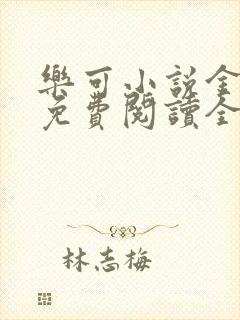 樂可小說全
免費閱讀全
林志梅